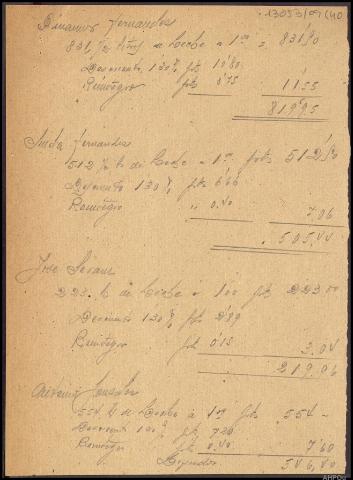 13053/01 (40
Fernandez
831 kilos de leche a 1 00 831 50
Descuento 1'30% pts 10'80
Reintegro pts 0'75 11'55
819'95
Fernandez
512 k de leche a 1 00 pts 512'50
Descuento 1'30% pts 6'66
Reintegro " 0.40 7.06
505.44
Jose
223 k de leche a 1 00 pts 223 00
Descuento 1'30% pts 2'89
Reintegro pts 0'15 3.04
219.06
554 k de leche a 1 00 pts 554 -
Descuento 1'30% pts 7'20
Reintegro pts 0.40 7.60
546,40
AHPOu